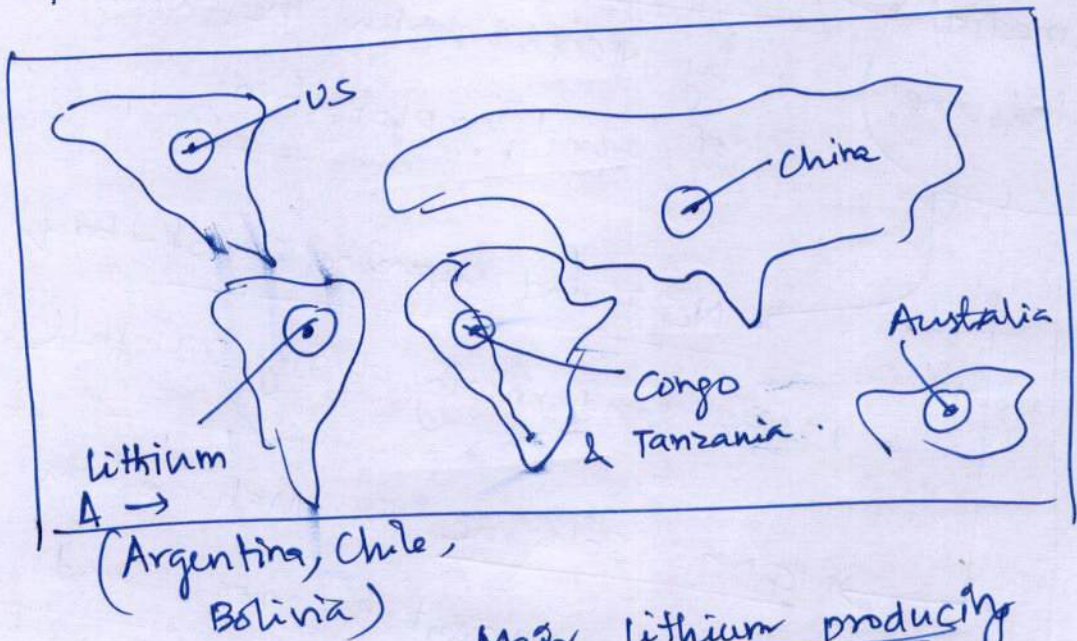 US
China
Australia
Congo
& Tanzania.
Lithium
Δ →
(Argentina, Chile,
Bolivia)
Major lithium producing